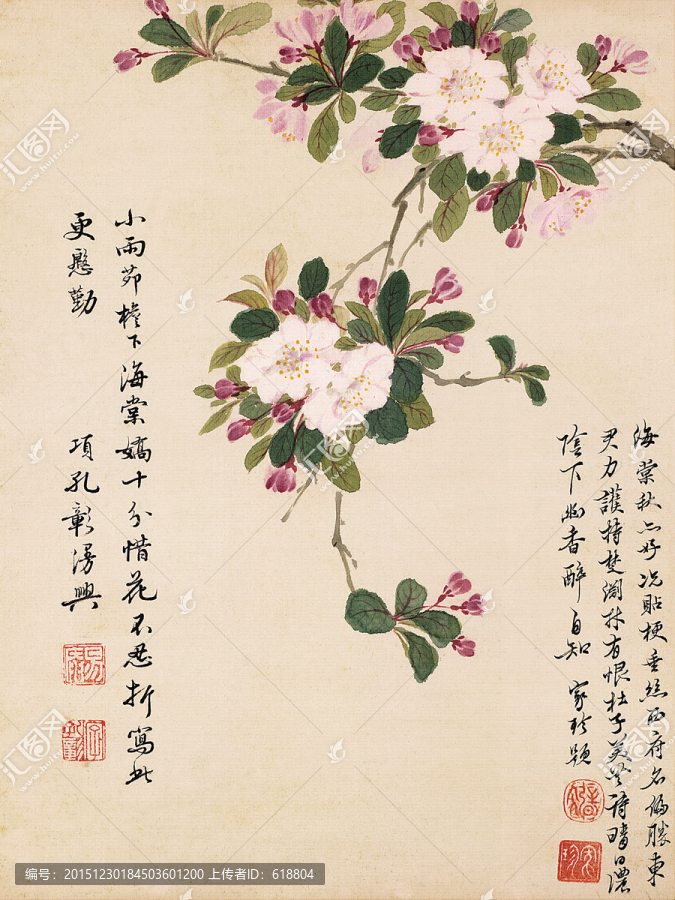 海棠秋亦好况貼梗垂絲西府名偏勝東
君力護持
有恨杜子美無詩晴日濃
陰下幽香醉自知 家珍題
小雨茆檐下海棠嬌十分惜花不忍折寫此
更慇勤
項孔彰漫興
编号：20151230184503601200 上传者ID：618804
汇图网
www.huitu.com